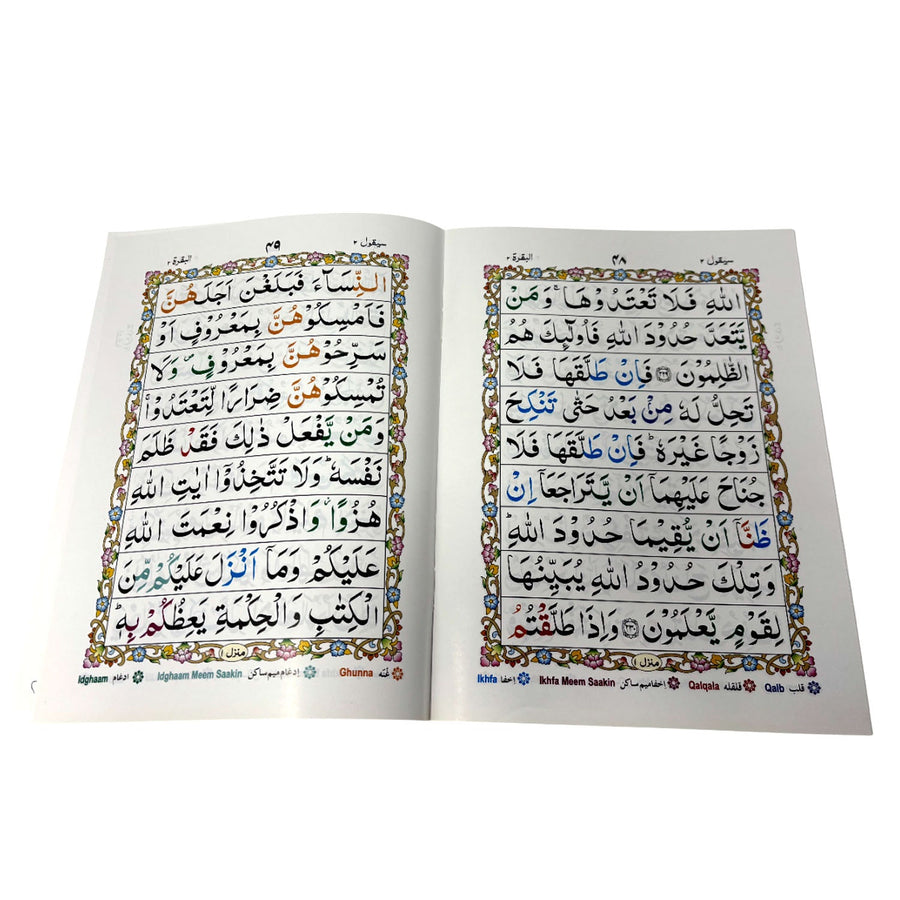 سيقول ٢
٤٨
البقرة ٢
اللهِ فَلَا تَعْتَدُوْهَا ۚ وَمَنْ
يَّتَعَدَّ حُدُوْدَ اللهِ فَاُولٰٓئِكَ هُمُ
الظّٰلِمُوْنَ ﴿۲۲۹﴾ فَاِنْ طَلَّقَهَا فَلَا
تَحِلُّ لَهٗ مِنْۢ بَعْدُ حَتّٰى تَنْكِحَ
زَوْجًا غَيْرَهٗ ؕ فَاِنْ طَلَّقَهَا فَلَا
جُنَاحَ عَلَيْهِمَاۤ اَنْ يَّتَرَاجَعَاۤ اِنْ
ظَنَّاۤ اَنْ يُّقِيْمَا حُدُوْدَ اللهِ ؕ
وَتِلْكَ حُدُوْدُ اللهِ يُبَيِّنُهَا
لِقَوْمٍ يَّعْلَمُوْنَ ﴿۲۳۰﴾ وَاِذَا طَلَّقْتُمُ
منزل ١
قلب Qalb
قلقله Qalqala
اخفا ميم ساكن Ikhfa Meem Saakin
اخفا Ikhfa
سيقول ٢
٤٩
البقرة ٢
النِّسَآءَ فَبَلَغْنَ اَجَلَهُنَّ
فَاَمْسِكُوْهُنَّ بِمَعْرُوْفٍ اَوْ
سَرِّحُوْهُنَّ بِمَعْرُوْفٍ ۪ وَّلَا
تُمْسِكُوْهُنَّ ضِرَارًا لِّتَعْتَدُوْا ۚ
وَمَنْ يَّفْعَلْ ذٰلِكَ فَقَدْ ظَلَمَ
نَفْسَهٗ ؕ وَلَا تَتَّخِذُوْۤا اٰيٰتِ اللهِ
هُزُوًا ۫ وَّاذْكُرُوْا نِعْمَتَ اللهِ
عَلَيْكُمْ وَمَاۤ اَنْزَلَ عَلَيْكُمْ مِّنَ
الْكِتٰبِ وَالْحِكْمَةِ يَعِظُكُمْ بِهٖ ؕ
منزل ١
غنه Ghunna
ادغام ميم ساكن Idghaam Meem Saakin
ادغام Idghaam